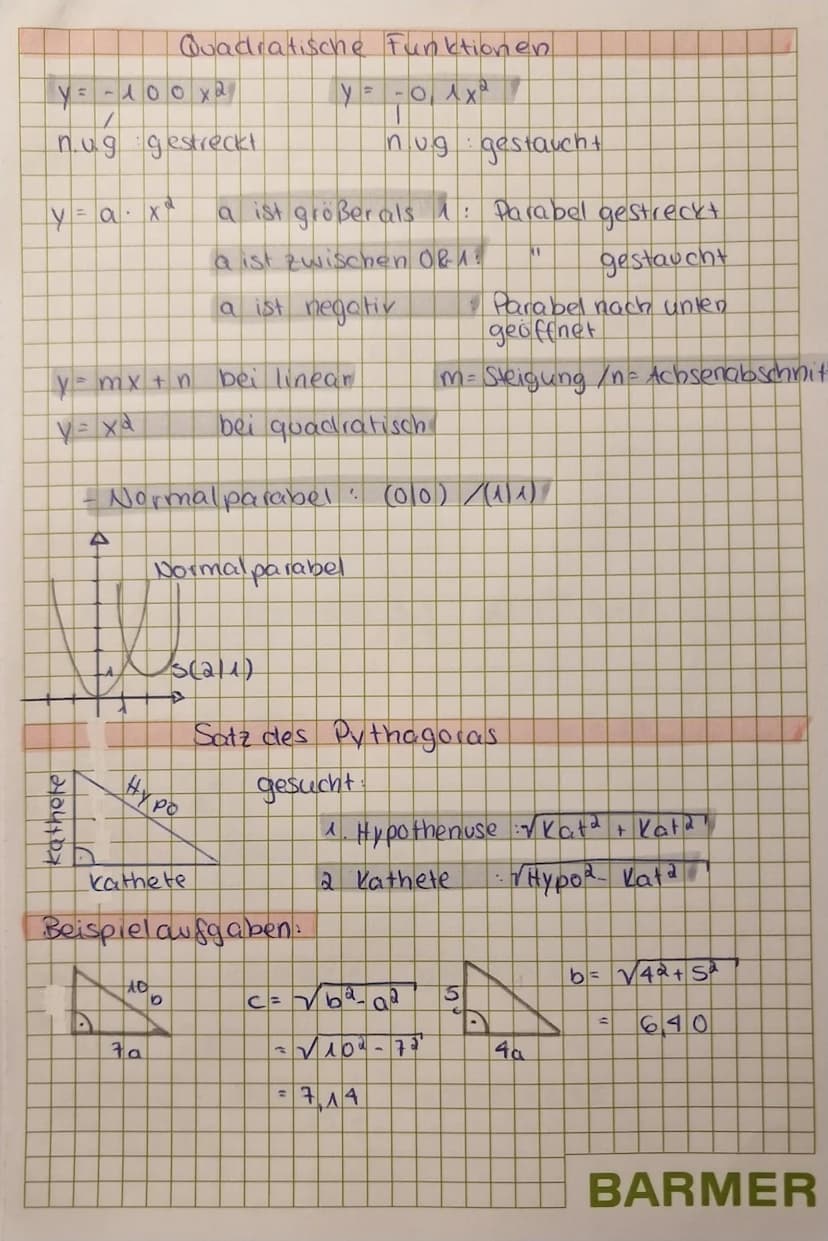 Quadratische Funktionen
y = -100x² y = -0,1x²
n.u.g : gestreckt n.u.g : gestaucht
y = a · x² a ist größer als 1 : Parabel gestreckt
a ist zwischen 0&1: " gestaucht
a ist negativ : Parabel nach unten
geöffnet
y = mx + n bei linear m = Steigung / n = Achsenabschnit
y = x² bei quadratisch
- Normalparabel : (0|0) / (1|1)
Normalparabel
1 S(2|1)
1
Satz des Pythagoras
Kathete Hypo gesucht:
1. Hypothenuse : √Kat² + Kat²
Kathete 2 Kathete : √Hypo² - Kat²
Beispielaufgaben:
10 b c = √b² - a² 5 c b = √4² + 5²
7a = √10² - 7² 4a = 6,40
= 7,14
BARMER